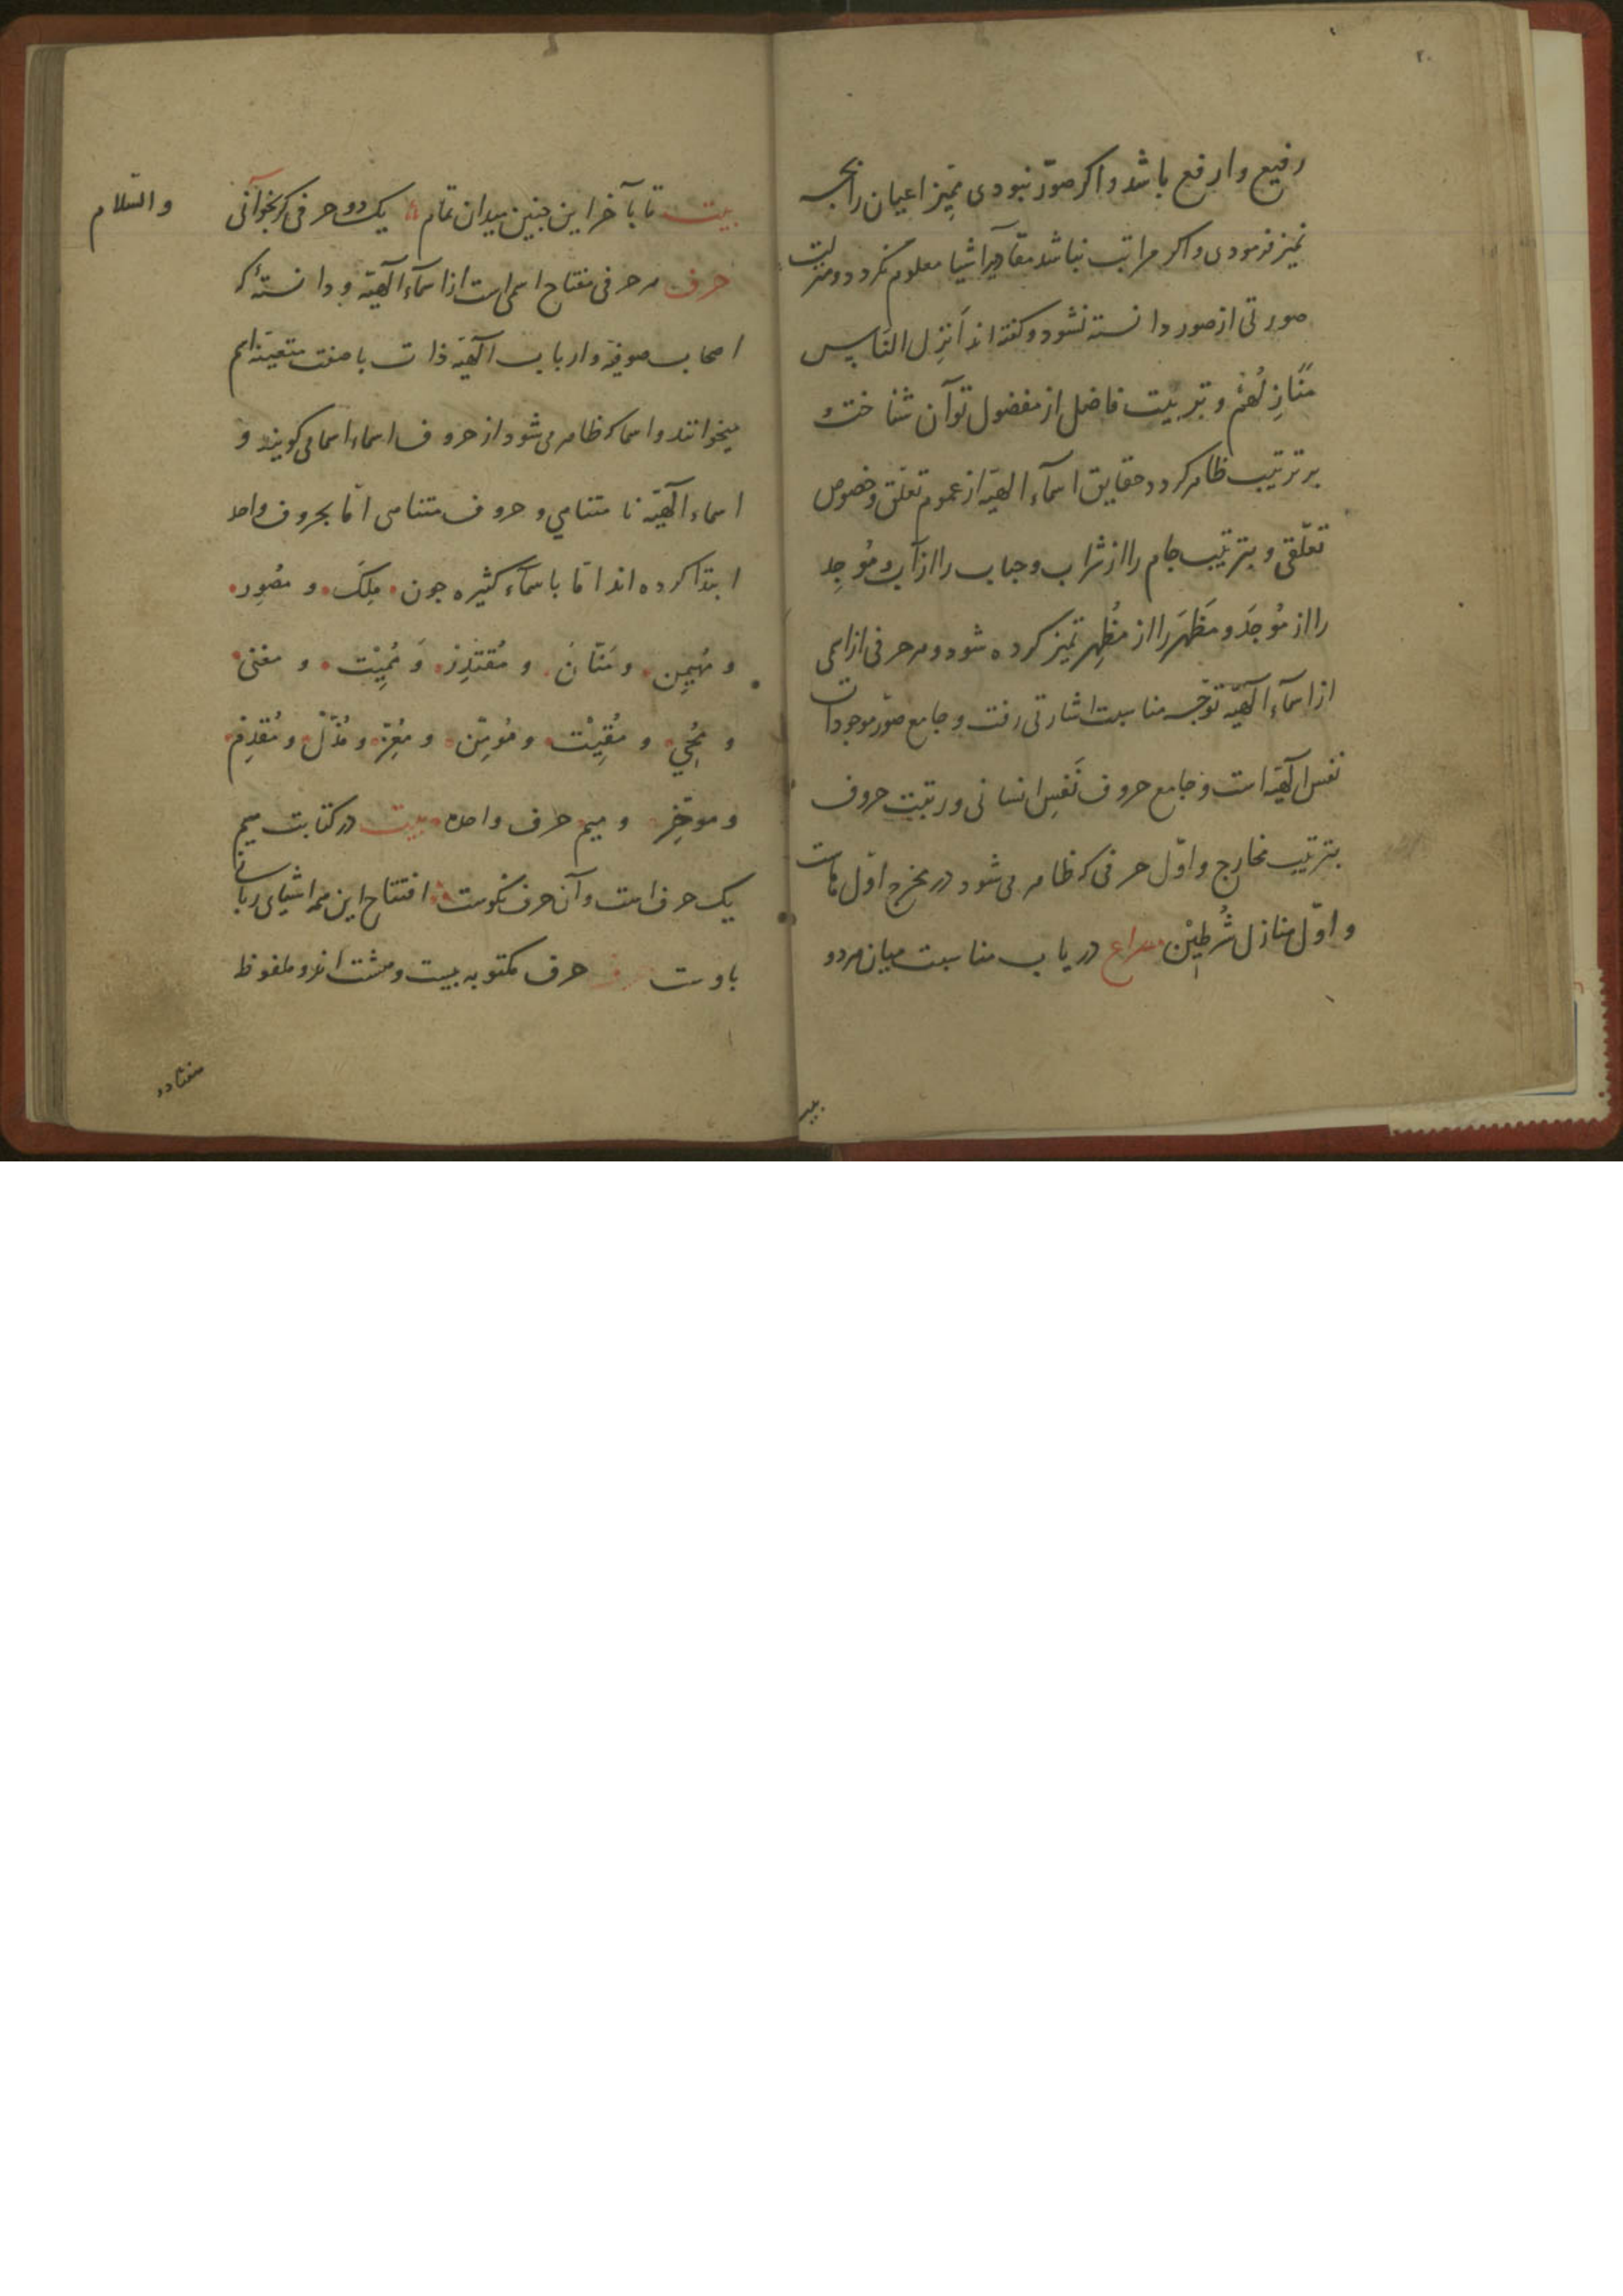 ۲۰
رفیع وارفع باشد واکر صوَر نبودی ممیّز اعیان را بچه
تمیز فرمودی واکر مراتب نباشد مقادیر اشیا معلوم نکردد ومنزلت
صورتی از صور دانسته نشود وکفته اند اَنزِل النّاس
مَنَازِلَهُم وبتربیت فاضل از مفضول توان شناخت و
بر ترتیب ظاهر کردد حقایق اسمآء الهیّه از عموم تعلّق وخصوص
تعلّقی و بترتیب جام را از شراب وحباب را از آب ومُوجِد
را از مُوجَد ومَظهَر را از مُظهِر تمیز کرده شود وهر حرفی از اسمی
از اسمآء الهیّه توجّه مناسبت اشارتی رفت وجامع صوَر موجودات
نفس الهیّه است وجامع حروف نَفَسِ انسانی ورتبت حروف
بترتیب مخارج واوّل حرفی که ظاهر می شود در مخرج اوّل هاست
و اوّل منازل شُرطَیْن مصراع دریاب مناسبت میان هر دو
بیت
بیت تا بآخر این جنین میدان تمام یک دو حرفی کر بخوآنی
والسّلام
حرف هر حرفی مفتاح اسمی است از اسمآء الهیّه ودانستهٔ که
اصحاب صوفیّه وارباب الهیّه ذات با صفت متعیّنه اسم
میخوانند واسما که ظاهر می شود از حروف اسماء اسما می کویند و
اسماء الهیّه نا متناهی و حروف متناهی امّا بحروف واحد
ابتدا کرده اند امّا باسمآء کثیره جون مِلک و مصُوِر
و مُهیمِن و مَنّان و مُقتَدِر و مُمِیْت و مغنی
و مُحیِي و مُقِیْت و مُومِن و مُعِزّ و مُذِلّ و مُقدِّم
و موَخِّر و میم حرف واحد بیت در کتابت میم
یک حرف است وآن حرف نکوست افتتاح این همه اشیای ربانی
باوست حرف حرف مکتوبه بیست وهشت اند وملفوظ
هفتاد و